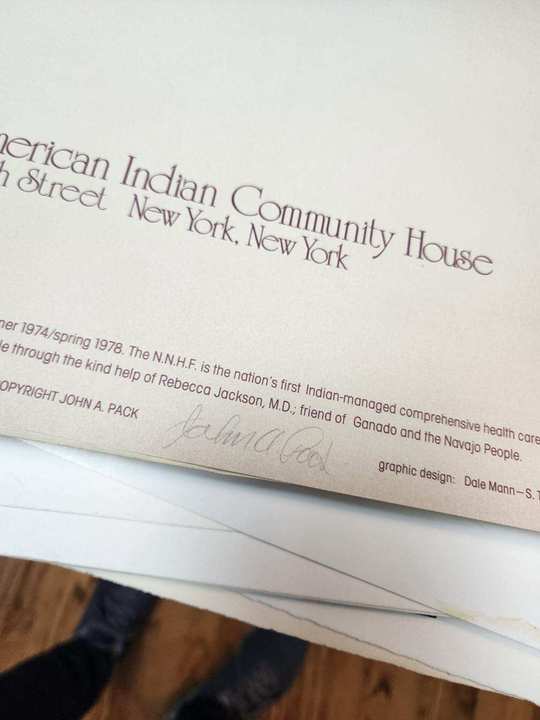 American Indian Community House
Street New York, New York
1974/spring 1978. The N.N.H.F. is the nation's first Indian-managed comprehensive health care
through the kind help of Rebecca Jackson, M.D., friend of Ganado and the Navajo People.
COPYRIGHT JOHN A. PACK
John A Pack
graphic design: Dale Mann—S.